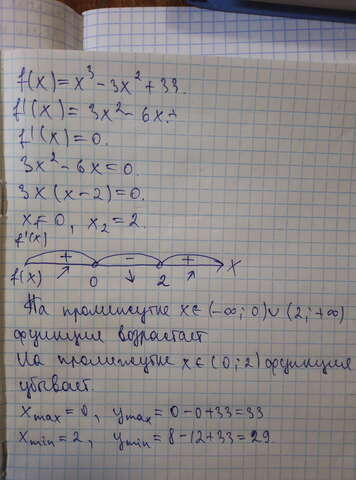 f(x) = x³ - 3x² + 33.
f'(x) = 3x² - 6x.
f'(x) = 0.
3x² - 6x = 0.
3x (x - 2) = 0.
x₁ = 0, x₂ = 2.
f'(x)
+ - +
f(x) ↗ 0 ↘ 2 ↗ X
На промежутке x ∈ (-∞; 0) ∪ (2; +∞)
функция возрастает
На промежутке x ∈ (0; 2) функция
убывает.
x max = 0, y max = 0 - 0 + 33 = 33
x min = 2, y min = 8 - 12 + 33 = 29